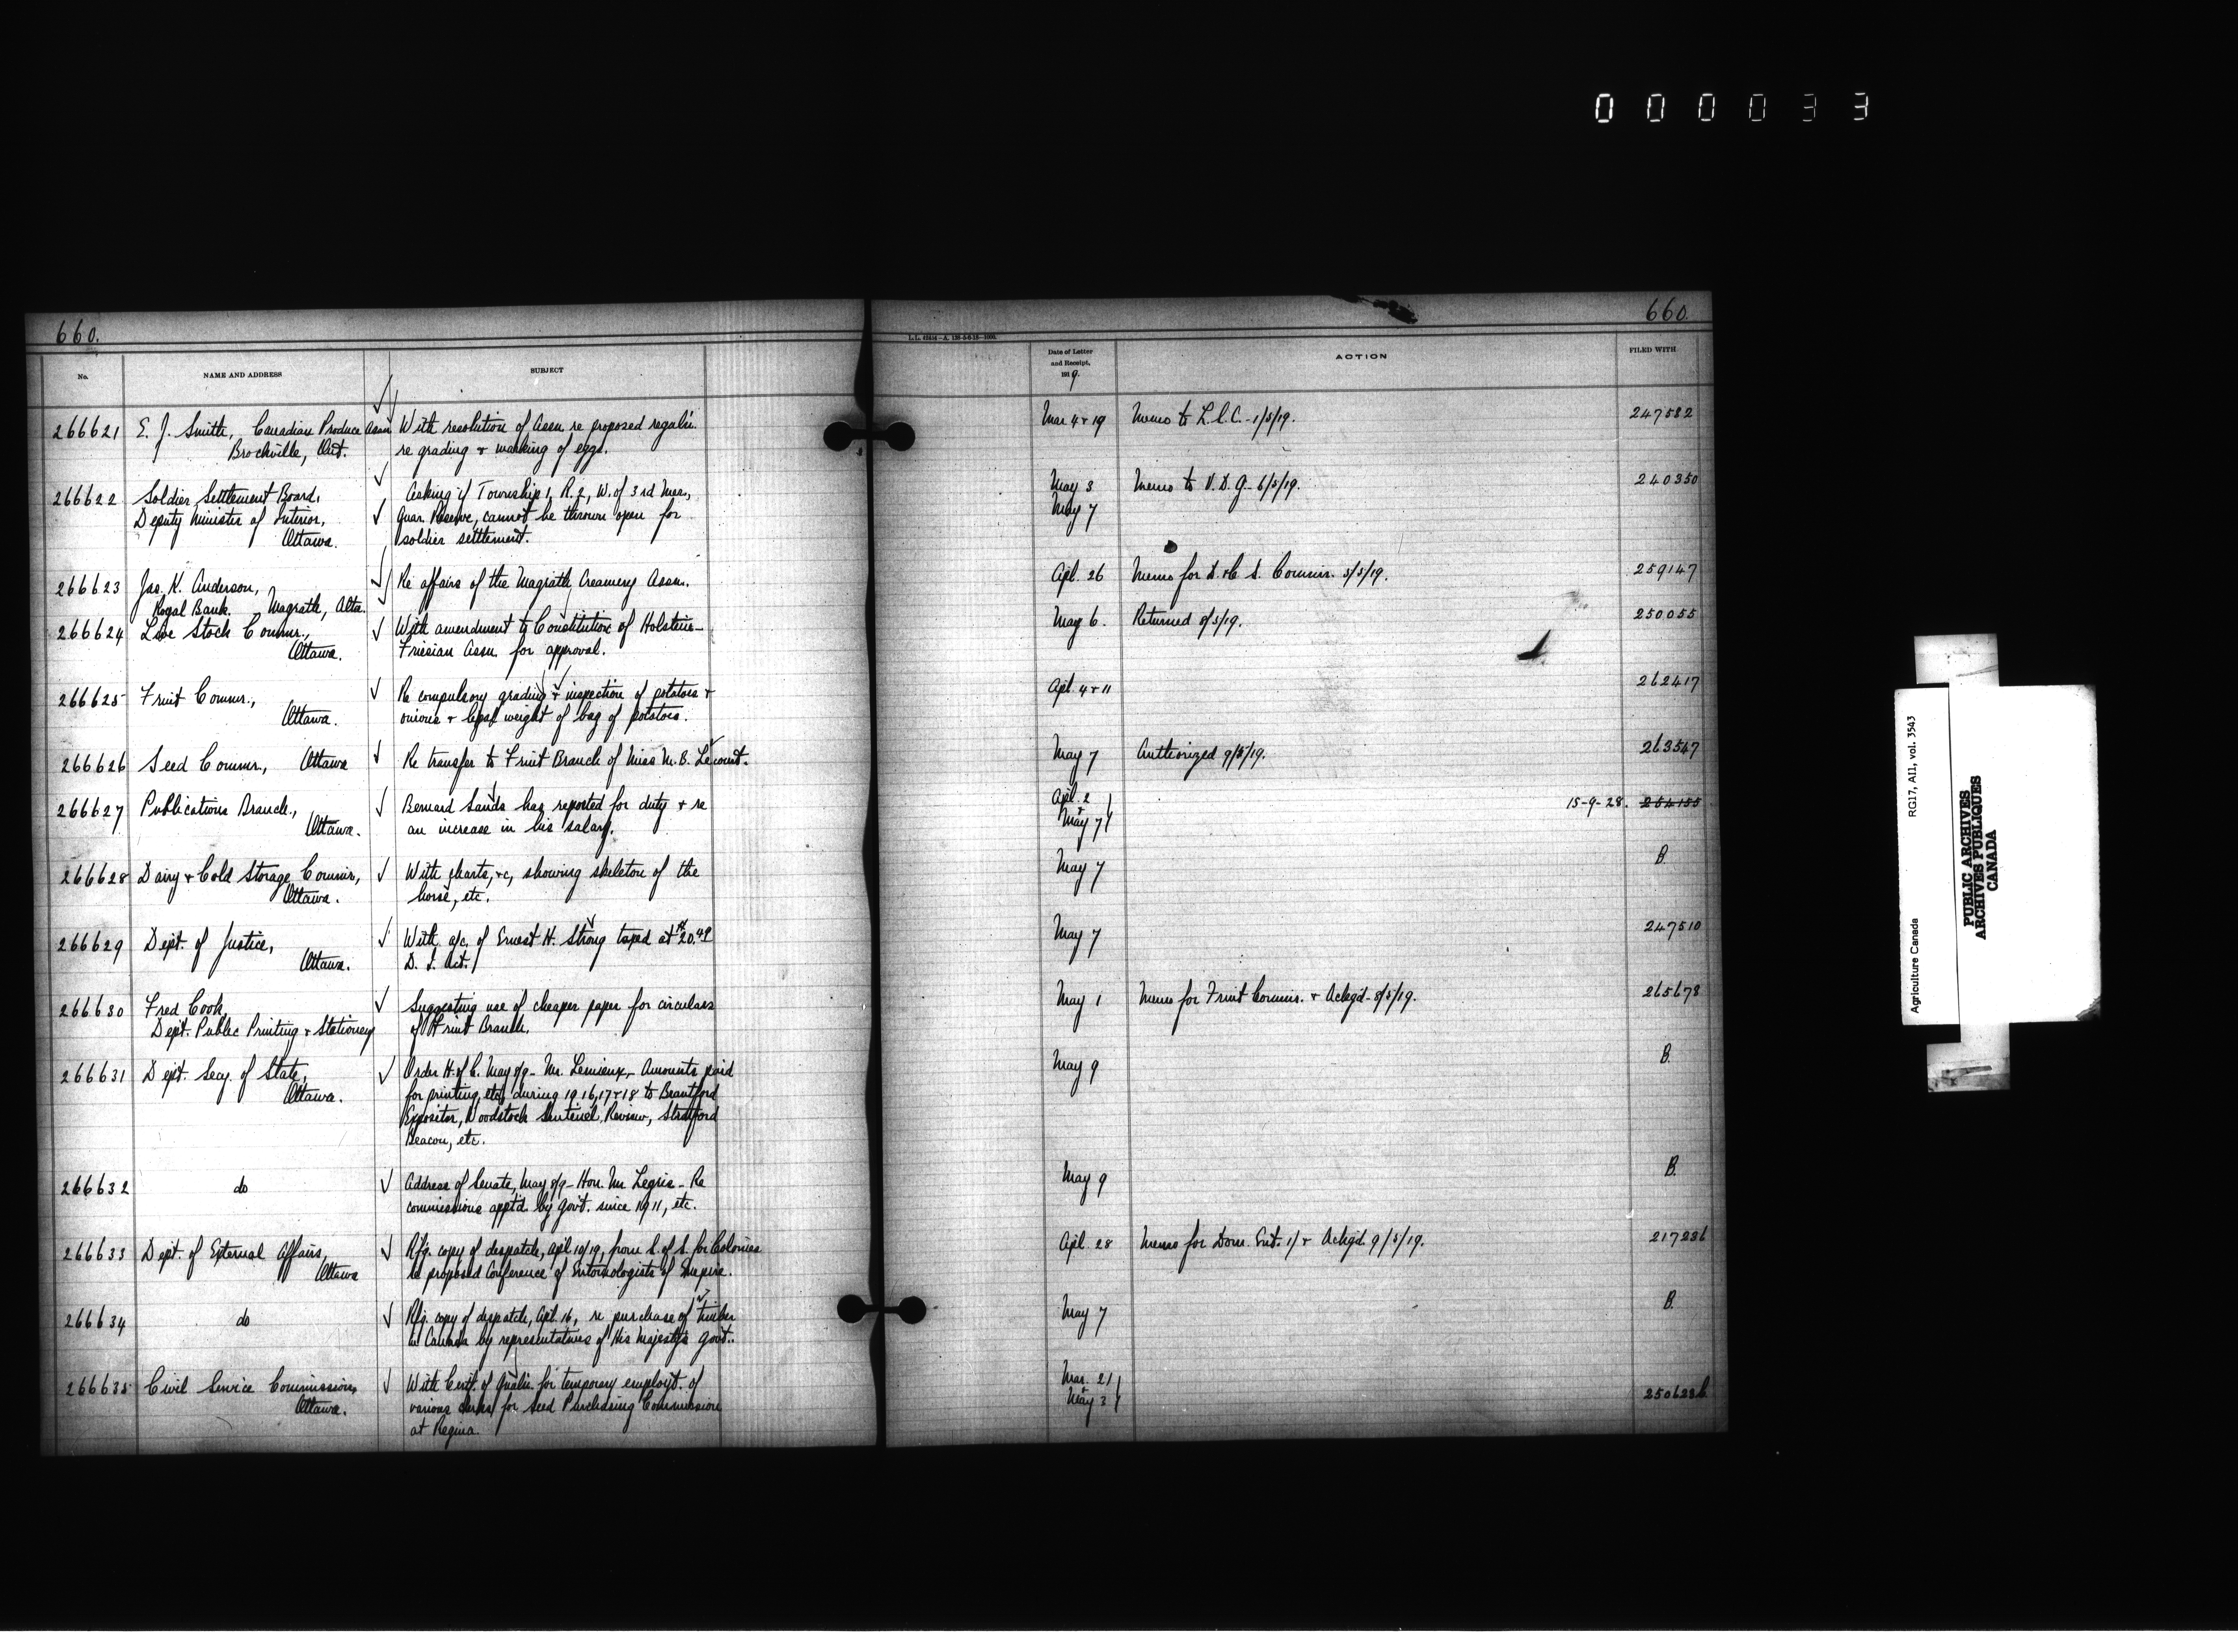 000033
660.
660.
L.L. 62414-A. 128-5-6-18-1000.
No.
NAME AND ADDRESS
SUBJECT
Date of Letter
and Receipt,
1919.
ACTION
FILED WITH
266621 E. J. Smith, Canadian Produce Assn. With resolution of Assn. re proposed regalu. Mar 4 & 19 Memo to L.S.C. - 1/5/19. 247582
Brockville, Ont. re grading & marking of eggs.
266622 Soldier Settlement Board, Asking if Township 1, R. 2, W. of 3rd Mer., May 3 Memo to V. D. G. - 6/5/19. 240350
Deputy Minister of Interior, Quar. Reserve, cannot be thrown open for May 7
Ottawa. soldier settlement.
266623 Jas. K. Anderson, Re affairs of the Magrath Creamery Assn. Apl. 26 Memo for D. & C. S. Commr. 5/5/19. 259147
Royal Bank. Magrath, Alta.
266624 Live Stock Commr., With amendment to Constitution of Holstein- May 6. Returned 8/5/19. 250055
Ottawa. Friesian Assn. for approval.
266625 Fruit Commr., Re compulsory grading & inspection of potatoes & Apl. 4 & 11 262417
Ottawa. onions & legal weight of bag of potatoes.
266626 Seed Commr., Ottawa Re transfer to Fruit Branch of Miss M. B. Lecount. May 7 Authorized 9/5/19. 263547
266627 Publications Branch, Bernard Sands has reported for duty & re Apl. 2 15-9-28. 254155
Ottawa. an increase in his salary. & May 7
266628 Dairy & Cold Storage Commr., With charts, &c, showing skeleton of the May 7 B.
Ottawa. horse, etc.
266629 Dept. of Justice, With a/c. of Ernest H. Strong taxed at $20.49 May 7 247510
Ottawa. D. I. Act.
266630 Fred Cook, Suggesting use of cheaper paper for circulars May 1 Memo for Fruit Commr. & Ackgd - 8/5/19. 265678
Dept. Public Printing & Stationery of Fruit Branch.
266631 Dept. Secy. of State, Order H. of C. May 8/9 - Mr. Lemieux - Amounts paid May 9 B.
Ottawa. for printing, etc. during 1916, 17 & 18 to Brantford
Expositor, Woodstock Sentinel Review, Stratford
Beacon, etc.
266632 do Address of Senate, May 8/9 - Hon. Mr. Legris - Re May 9 B.
commissions apptd. by govt. since 1911, etc.
266633 Dept. of External Affairs, Rfg. copy of despatch, Apl 10/19, from S. of S. for Colonies Apl. 28 Memo for Dom. Ent. 1/ & Ackgd. 9/5/19. 217236
Ottawa re proposed Conference of Entomologists of Empire.
266634 do Rfg. copy of despatch, Apl. 16, re purchase of timber May 7 B.
in Canada by representatives of His Majesty's govt..
266635 Civil Service Commission, With Certf. of Qualn. for temporary employt. of Mar. 21 250623b
Ottawa. various clerks for Seed Purchasing Commission & May 3
at Regina.
Agriculture Canada RG17, AI1, vol. 3543
PUBLIC ARCHIVES
ARCHIVES PUBLIQUES
CANADA